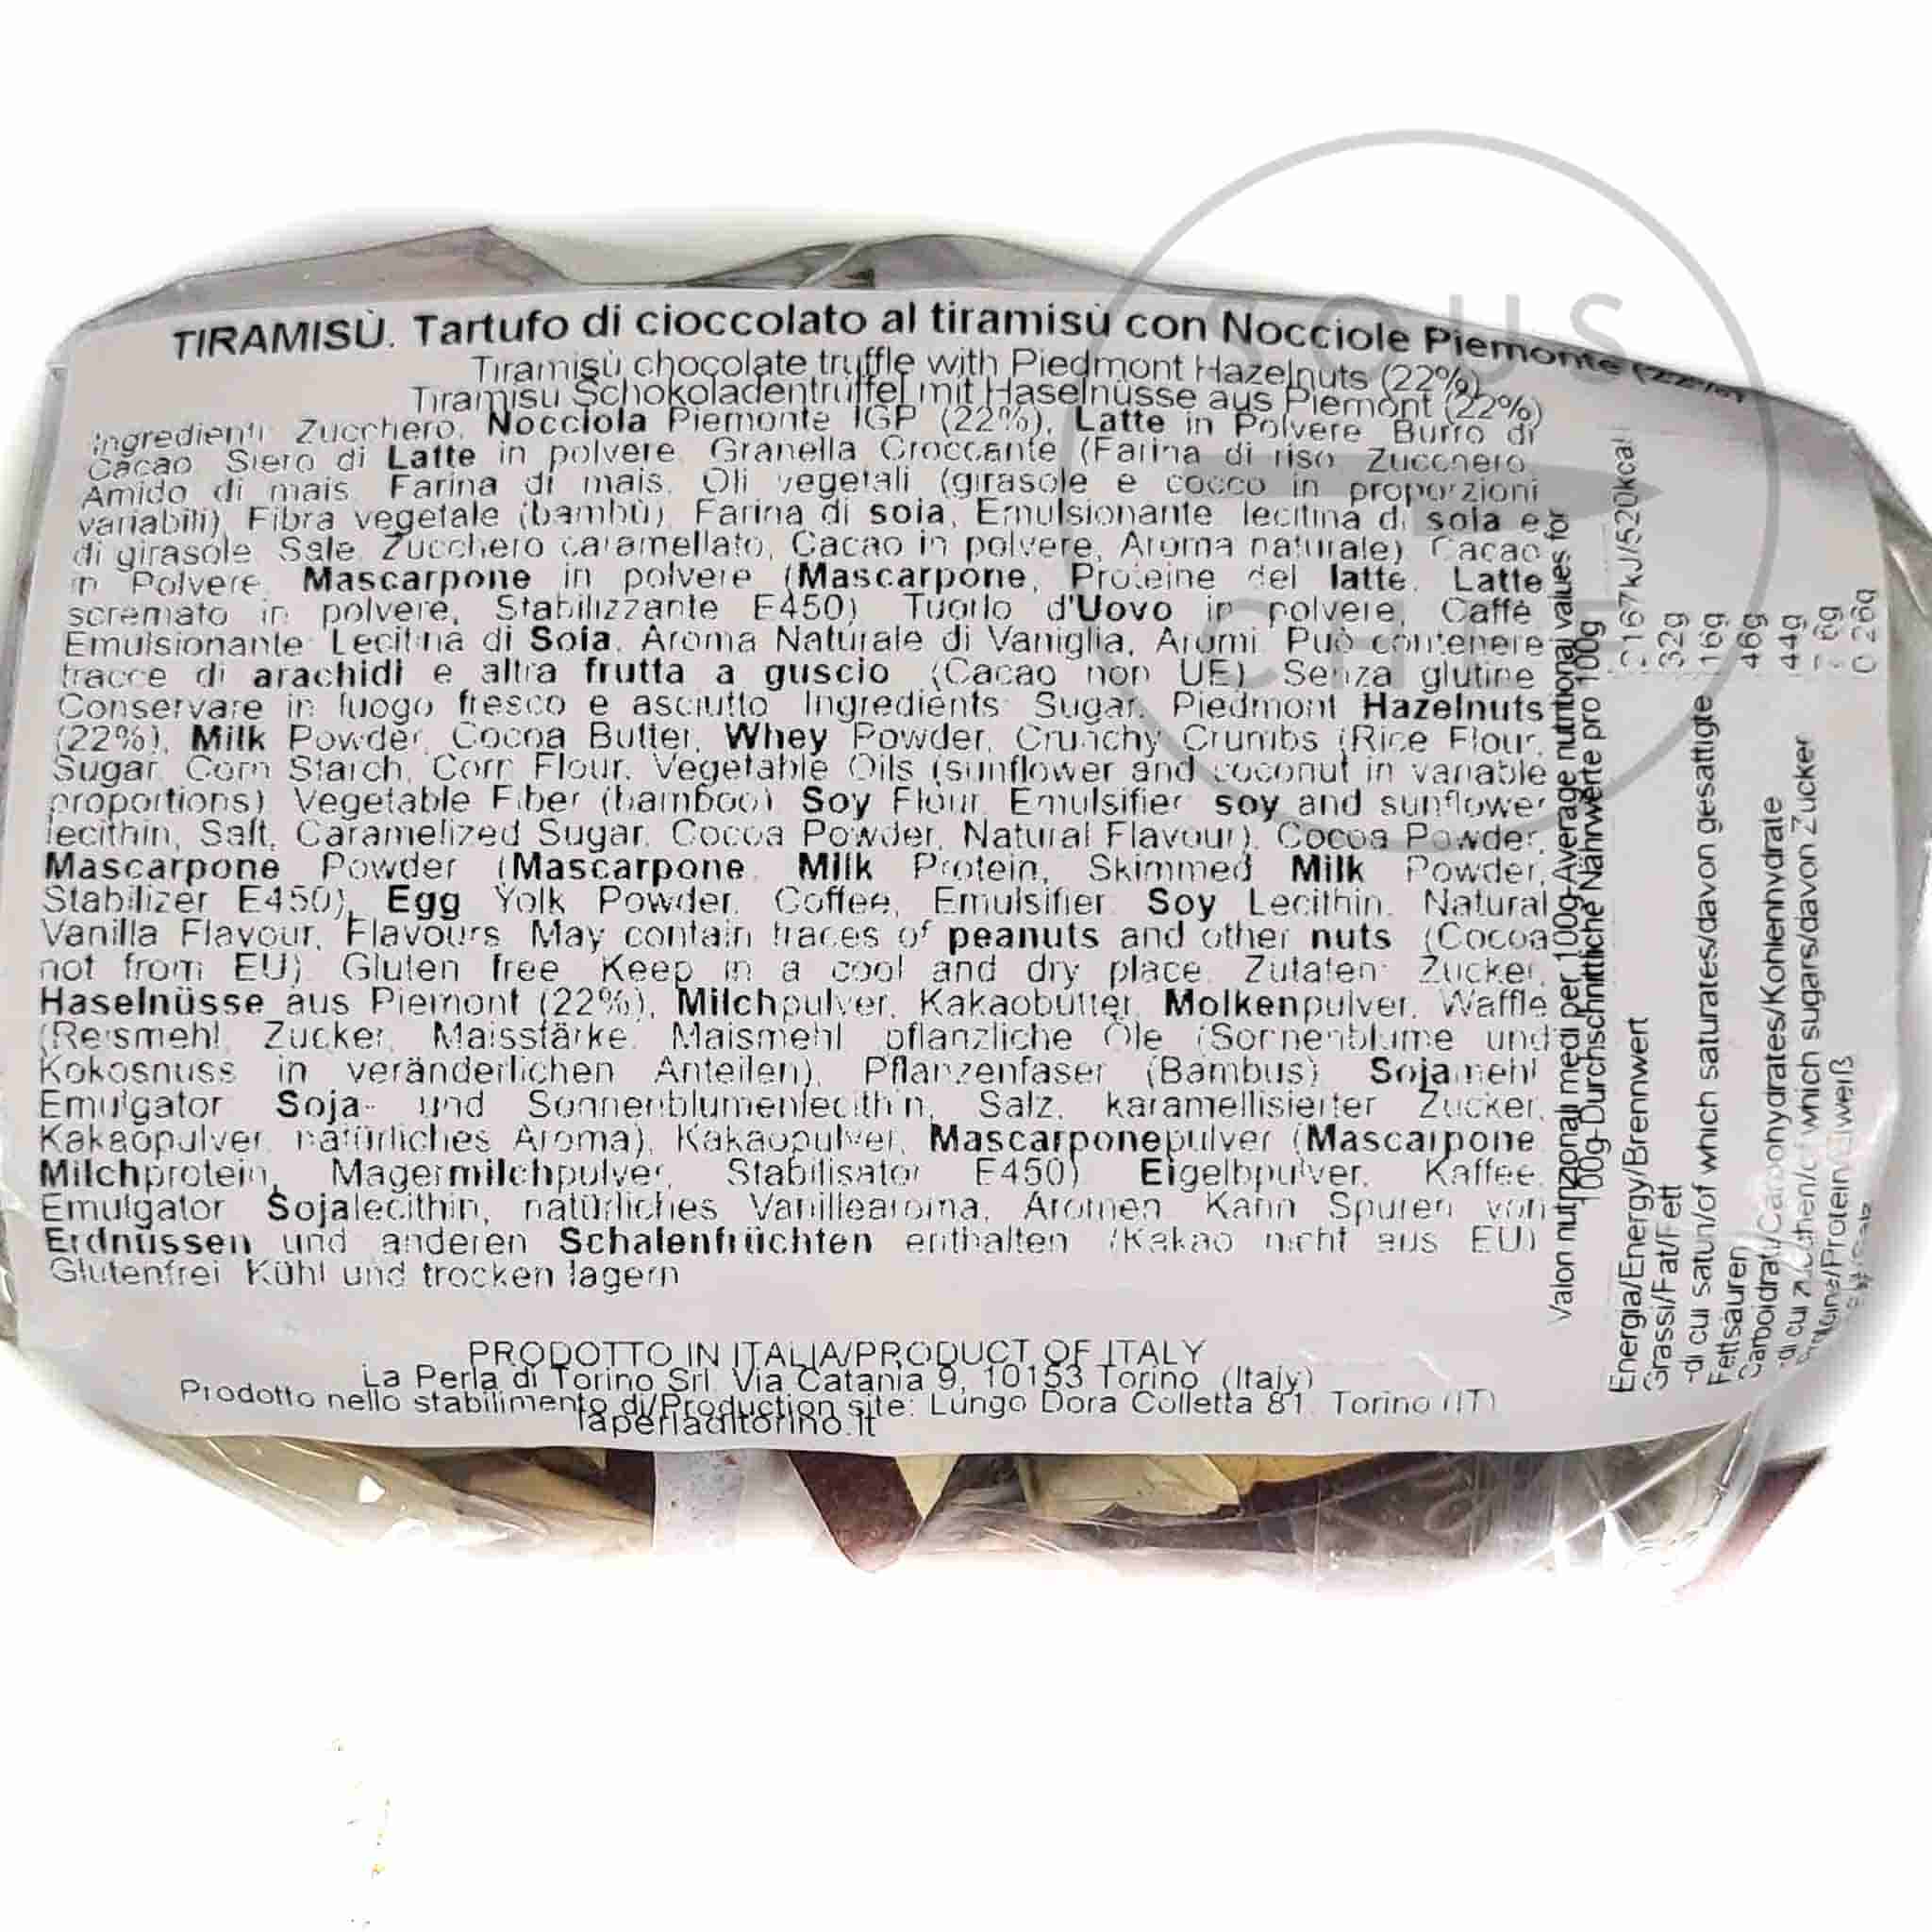 TIRAMISÙ. Tartufo di cioccolato al tiramisù con Nocciole Piemonte (22%)
Tiramisù chocolate truffle with Piedmont Hazelnuts (22%)
Tiramisu Schokoladentrüffel mit Haselnüsse aus Piemont (22%)
Ingredienti Zucchero, Nocciola Piemonte IGP (22%), Latte in Polvere Burro di
Cacao Siero di Latte in polvere Granella Croccante (Farina di riso Zucchero
Amido di mais Farina di mais, Oli vegetali (girasole e cocco in proporzioni
variabili) Fibra vegetale (bambù) Farina di soia, Emulsionante lecitina di soia e
di girasole Sale Zucchero caramellato, Cacao in polvere, Aroma naturale) Cacao
in Polvere, Mascarpone in polvere (Mascarpone, Proteine del latte, Latte
scremato in polvere, Stabilizzante E450) Tuorlo d'Uovo in polvere, Caffè
Emulsionante Lecitina di Soia, Aroma Naturale di Vaniglia, Aromi Può contenere
tracce di arachidi e altra frutta a guscio (Cacao non UE) Senza glutine
Conservare in luogo fresco e asciutto Ingredients: Sugar, Piedmont Hazelnuts
(22%), Milk Powder, Cocoa Butter, Whey Powder, Crunchy Crumbs (Rice Flour,
Sugar Corn Starch, Corn Flour, Vegetable Oils (sunflower and coconut in variable
proportions) Vegetable Fiber (bamboo) Soy Flour, Emulsifier soy and sunflower
lecithin, Salt, Caramelized Sugar, Cocoa Powder, Natural Flavour), Cocoa Powder,
Mascarpone Powder (Mascarpone, Milk Protein, Skimmed Milk Powder,
Stabilizer E450), Egg Yolk Powder, Coffee, Emulsifier Soy Lecithin, Natural
Vanilla Flavour, Flavours May contain traces of peanuts and other nuts (Cocoa
not from EU) Gluten free Keep in a cool and dry place. Zutaten: Zucker,
Haselnüsse aus Piemont (22%), Milchpulver, Kakaobutter, Molkenpulver, Waffle
(Reismehl Zucker, Maisstärke, Maismehl pflanzliche Öle (Sonnenblume und
Kokosnuss in veränderlichen Anteilen), Pflanzenfaser (Bambus) Sojamehl
Emulgator Soja- und Sonnenblumenlecithin, Salz, karamellisierter Zucker,
Kakaopulver, natürliches Aroma), Kakaopulver, Mascarponepulver (Mascarpone
Milchprotein, Magermilchpulver, Stabilisator E450) Eigelbpulver, Kaffee,
Emulgator Sojalecithin, natürliches Vanillearoma, Aromen Kann Spuren von
Erdnüssen und anderen Schalenfrüchten enthalten (Kakao nicht aus EU)
Glutenfrei Kühl und trocken lagern
PRODOTTO IN ITALIA/PRODUCT OF ITALY
La Perla di Torino Srl Via Catania 9, 10153 Torino (Italy)
Prodotto nello stabilimento di/Production site: Lungo Dora Colletta 81 Torino (IT)
laperladitorino.it
Valori nutrizionali medi per 100g-Average nutritional values for
100g-Durchschnittliche Nährwerte pro 100g
Energia/Energy/Brennwert 2167kJ/520kcal
Grassi/Fat/Fett 32g
-di cui saturi/of which saturates/davon gesättigte 16g
Fettsäuren
Carboidrati/Carbohydrates/Kohlenhydrate 46g
-di cui zuccheri/of which sugars/davon Zucker 44g
Proteine/Protein/Eiweiß
0 26g
SOUS
CHEF